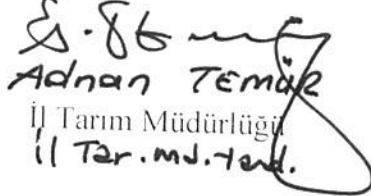 Adnan TEMÜR
İl Tarım Müdürlüğü
İl Tar. Md. Yard.